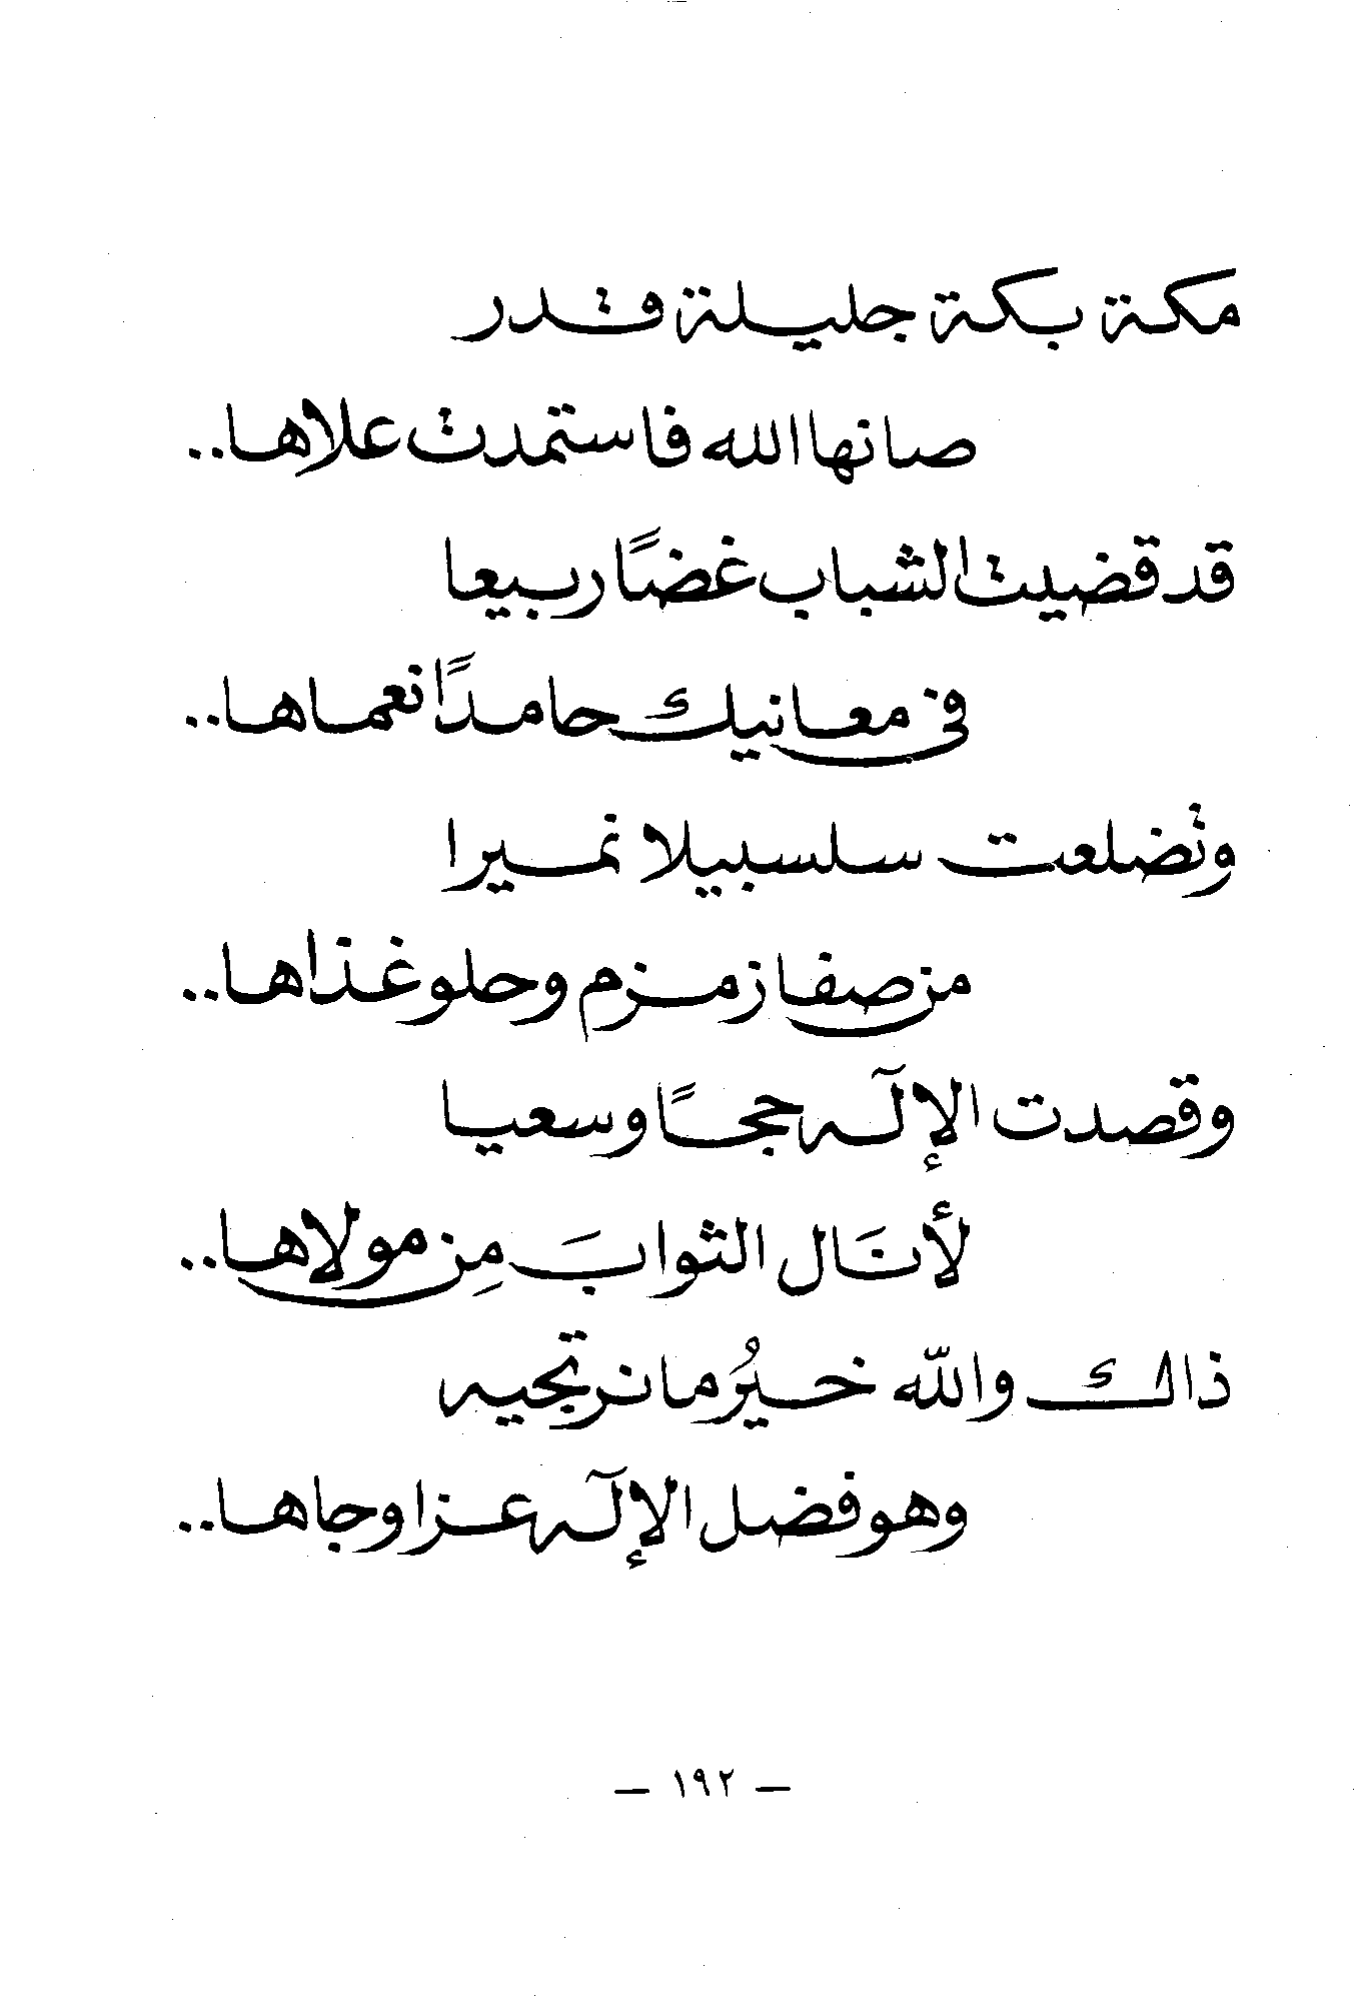 مكة بكة جليلة قدر
صانها الله فاستمدت علاها..
قد قضيت الشباب غضًا ربيعا
في معانيك حامدًا نعماها..
وتضلعت سلسبيلا نميرا
من صفا زمزم وحلو غذاها..
وقصدت الإله حجًا وسعيا
لأنَال الثوابَ مِن مولاها..
ذالك واللّه خيُر ما نرتجيه
وهو فضل الإله عزا وجاها..
— ١٩٢ —